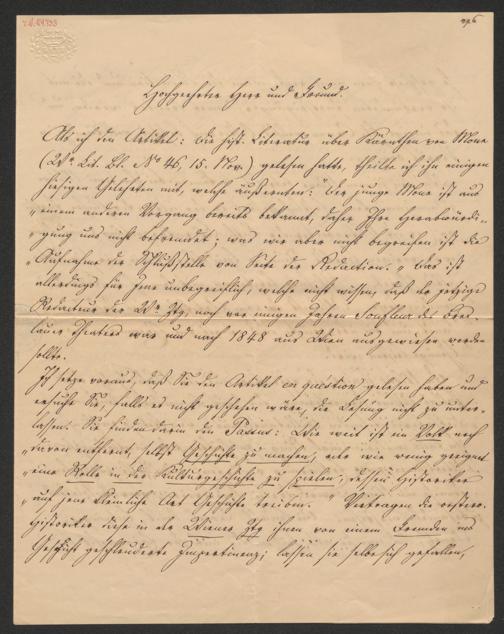 296
Hochgeehrter Herr und Freund.
Als ich den Artikel: Die hist. Literatur über Kärnthen von Mone
(Wr. Lit. Bl. No 46, 15. Nov.) gelesen hatte, theilte ich ihn einigen
hiesigen Gelehrten mit, welche äußerten: "Der junge Mone ist aus
"einem anderen Vorgang bereits bekannt, daher Ihre Herabwürdi-
"gung uns nicht befremdet; was wir aber nicht begreifen ist die
"Aufnahme der Schlußstelle von Seite der Redaction." Das ist
allerdings für jene unbegreiflich, welche nicht wissen, daß der jetzige
Redacteur der Wr. Ztg. noch vor einigen Jahren Souffleur des Bres-
lauer Theaters war und nach 1848 aus Wien ausgewiesen werden
sollte.
Ich setze voraus, daß Sie den Artikel en question gelesen haben und
ersuche Sie, falls es nicht geschehen wäre, die Lesung nicht zu unter-
lassen. Sie finden darin den Passus: Wie weit ist ein Volk noch
"davon entfernt, selbst Geschichte zu machen, oder wie wenig geeignet
"eine Rolle in der Kulturgeschichte zu spielen, dessen Historiker
"auf jene kleinliche Art Geschichte treiben." Vertragen die österr.
Historiker diese in der Wiener Ztg ihnen von einem Fremden ins
Gesicht geschleuderte Impertinenz; lassen sie selbe sich gefallen,